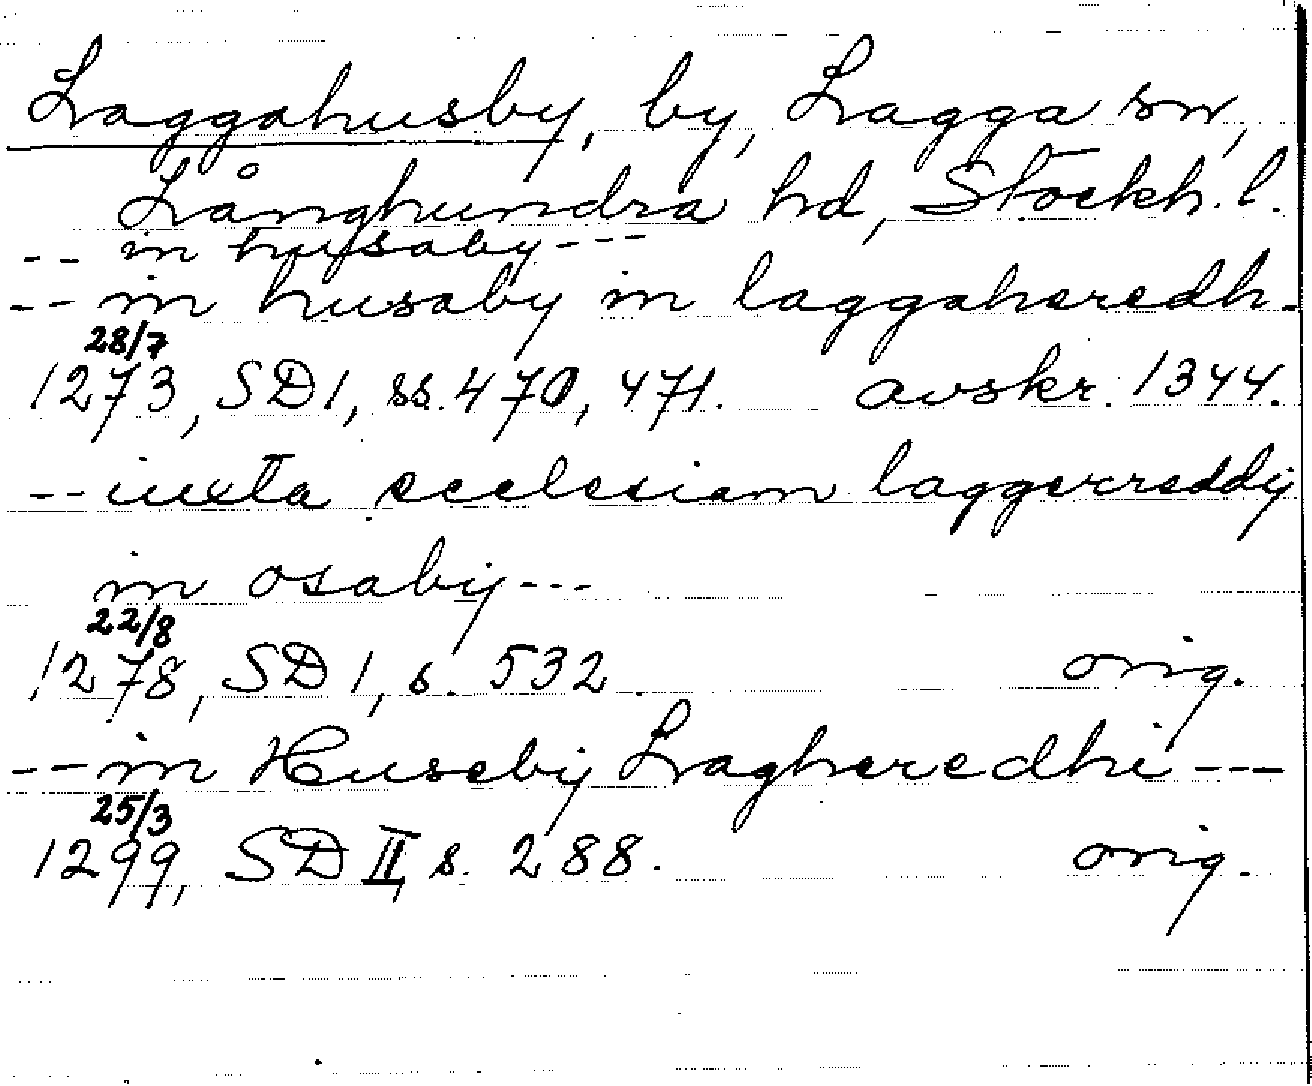 Laggahusby, by, Lagga sn,
Långhundra hd, Stockh. l.
-- in husaby ---
-- in husaby in laggaheredh -
28/7
1273, SD 1, ss. 470, 471. avskr. 1344.
-- iuxta ecclesiam laggerreddij
in osabij ---
22/8
1278, SD 1, s. 532. orig.
-- in Husebij Lagheredhi ---
25/3
1299, SD II, s. 288. orig.